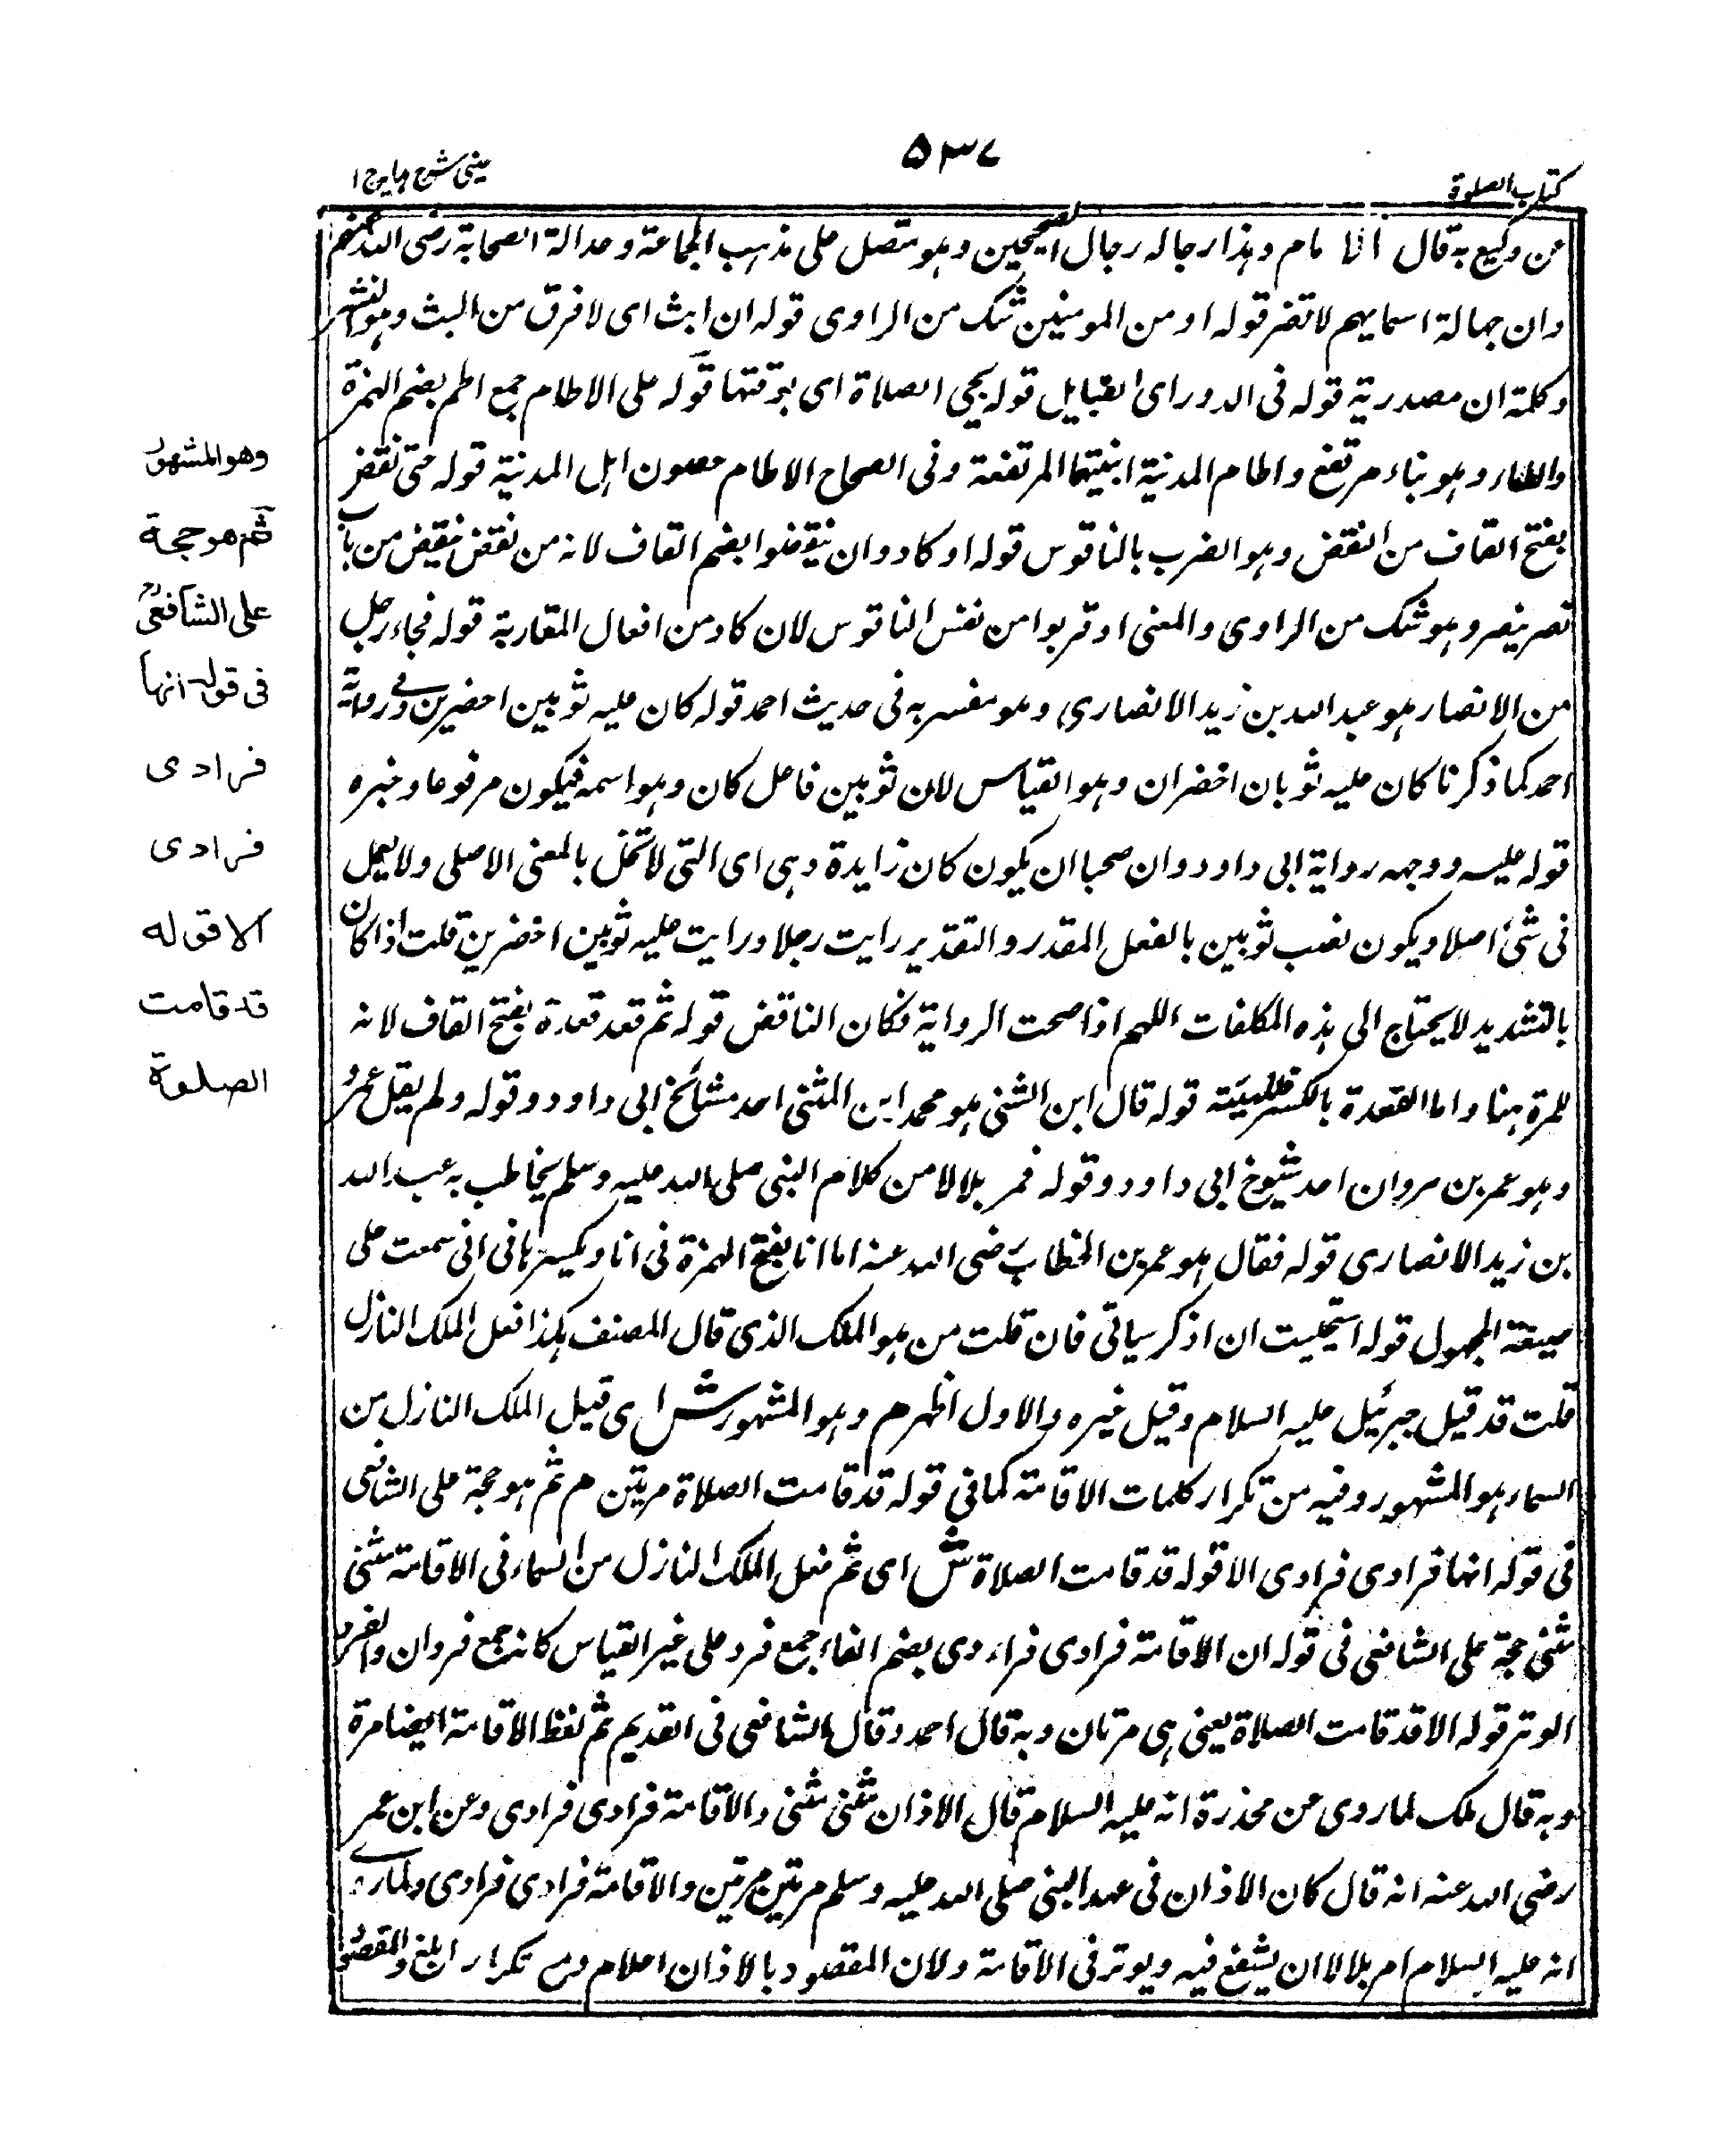 كتاب الصلوة
۵۳۷
عینی شرح ہدایہ ج ۱
عن وکیع به قال الامام وہذا رجاله رجال الصحیحین وہو متصل علی مذہب الجماعة وعدالة الصحابة رضی اللہ عنہم
وان جہالة اسمایہم لا تضر قوله او من المومنین شک من الراوی قوله ان ابث ای لا فرق من البث وہو النشر
وکلمة ان مصدریة قوله فی الدور ای القبایل قوله بحی الصلاة ای بوقتہا قوله علی الاطام جمع اطم بضم الہمزة
والطاء وہو بناء مرتفع واطام المدینة ابنیتہا المرتفعة وفی الصحاح الاطام حصون اہل المدینة قوله حتی نقض
بفتح القاف من النقض وہو الضرب بالناقوس قوله او کادوا ان ینقضوا بضم القاف لانه من نقض ینقض من باب
نصر ینصر وہو شک من الراوی والمعنی او قربوا من نفس الناقوس لان کاد من افعال المقاربة قوله فجاء رجل
من الانصار ہو عبد اللہ بن زید الانصاری وہو مفسر به فی حدیث احمد قوله کان علیه ثوبین اخضرین وفی روایة
احمد کما ذکرنا کان علیه ثوبان اخضران وہو القیاس لان ثوبین فاعل کان وہو اسمه فیکون مرفوعا وخبره
قوله علیه ووجهه روایة ابی داود وان صحا ان یکون کان زایدة وہی ای التی لا تخل بالمعنی الاصلی ولا یعمل
فی شئ اصلا ویکون نصب ثوبین بالفعل المقدر والتقدیر رایت رجلا ورایت علیه ثوبین اخضرین قلت اذا کان
بالتشدید لا یحتاج الی ہذه المکلفات اللہم اذا صحت الروایة فکان الناقض قوله ثم قعد قعدة بفتح القاف لانه
للمرة ہنا واما القعدة بالکسر فللہیئة قوله قال ابن المثنی ہو محمد ابن المثنی احد مشائخ ابی داود وقوله ولم یقل عمرو
وہو عمر بن مروان احد شیوخ ابی داود وقوله فمر بلالا من کلام النبی صلی اللہ علیه وسلم یخاطب به عبد اللہ
بن زید الانصاری قوله فقال ہو عمر بن الخطاب رضی اللہ عنه اما انا بفتح الہمزة فی انا وبکسرہا فی انی سمعت علی
صیغة المجہول قوله استحییت ان اذکر سیاتی فان قلت من ہو الملک الذی قال المصنف ہکذا فعل الملک النازل
قلت قد قیل جبرئیل علیه السلام وقیل غیره والاول اظہر م وہو المشہور ش ای قیل الملک النازل من
السماء ہو المشہور وفیه من تکرار کلمات الاقامة کما فی قوله قد قامت الصلاة مرتین م ثم ہو حجة علی الشافعی
فی قوله انہا فرادی فرادی الا قوله قد قامت الصلاة ش ای ثم فعل الملک النازل من السماء فی الاقامة مثنی
مثنی حجة علی الشافعی فی قوله ان الاقامة فرادی فرادی بضم الفاء جمع فرد علی غیر القیاس کانه جمع فردان والفرد
الوتر قوله الا قد قامت الصلاة یعنی ہی مرتان وبه قال احمد وقال الشافعی فی القدیم ثم لفظ الاقامة ایضا مرة
وبه قال ملک لما روی عن محذرة انه علیه السلام قال الاذان مثنی مثنی والاقامة فرادی فرادی وعن ابن عمر
رضی اللہ عنه انه قال کان الاذان فی عہد النبی صلی اللہ علیه وسلم مرتین مرتین والاقامة فرادی فرادی ولما روی
انه علیه السلام امر بلالا ان یشفع فیه ویوتر فی الاقامة ولان المقصود بالاذان اعلام ومن تکرار ابلغ والمقصود
وهو المشهور
ثم هو حجة
علی الشافعیؒ
فی قوله انها
فرادی
فرادی
الا قوله
قد قامت
الصلوة